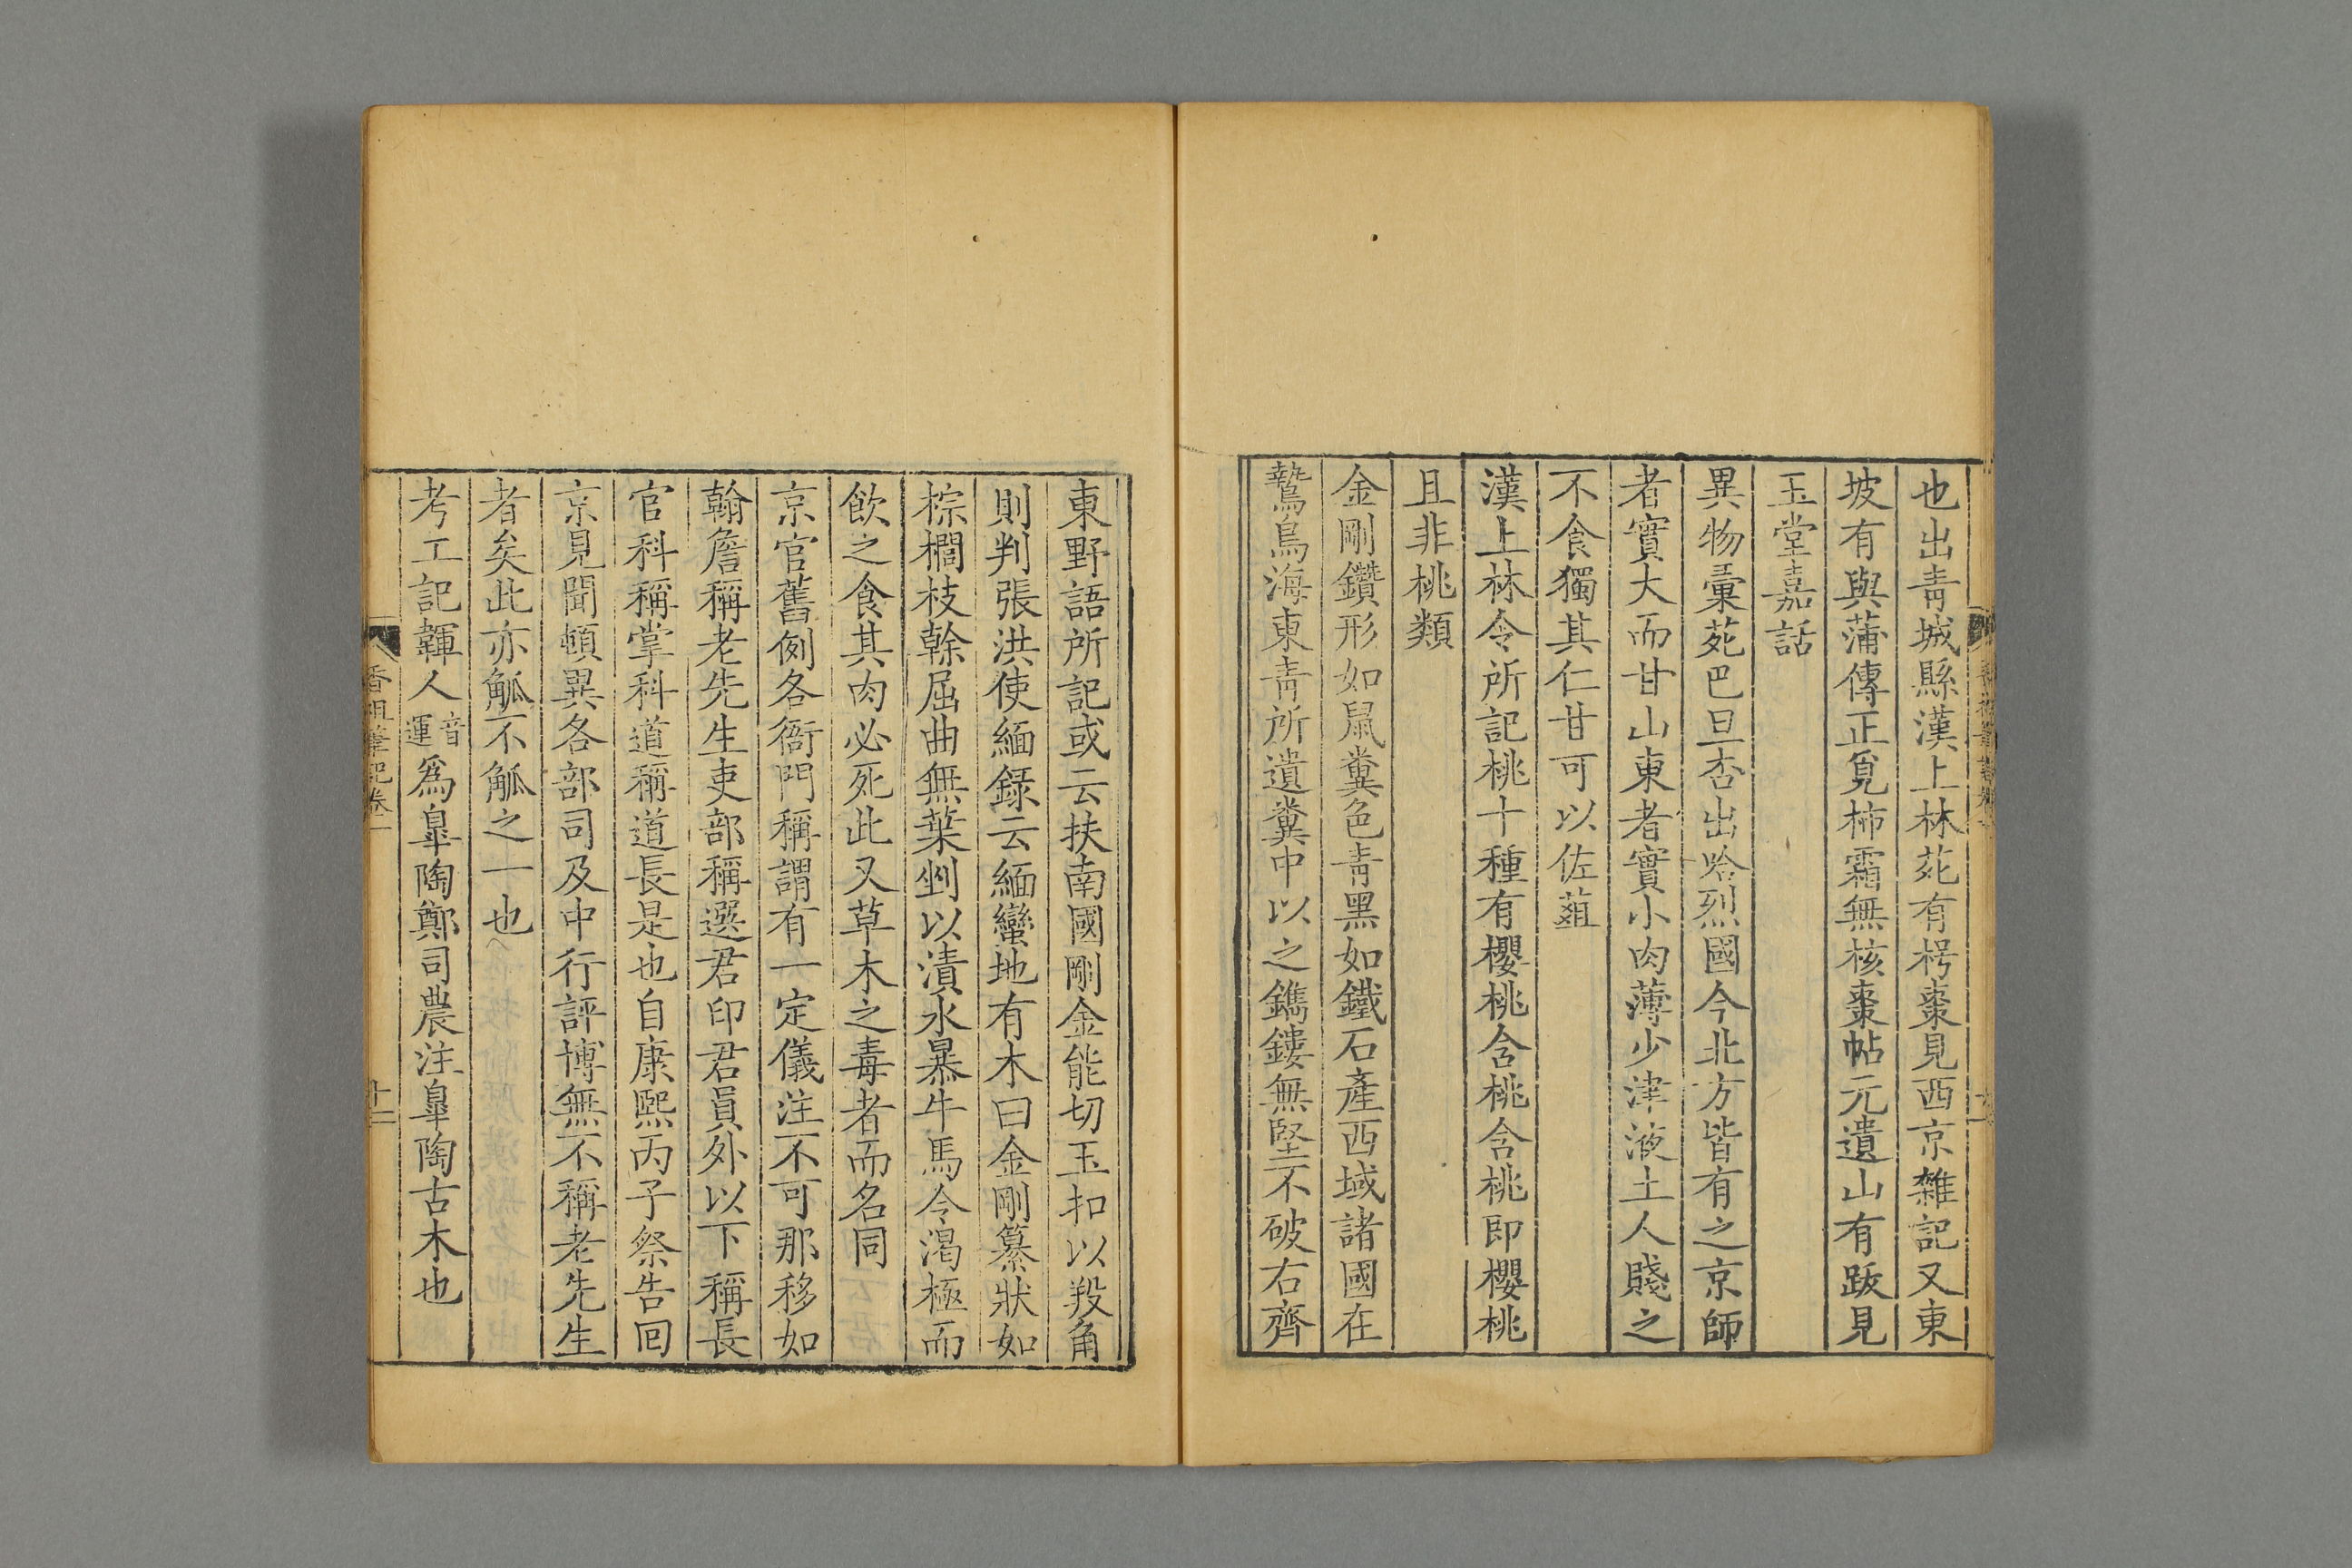 也出青城縣漢上林苑有梬棗見西京雜記又東
坡有與蒲傳正覓柿霜無核棗帖元遺山有跋見
玉堂嘉話
異物彙苑巴旦杏出哈烈國今北方皆有之京師
者實大而甘山東者實小肉薄少津液土人賤之
不食獨其仁甘可以佐葅
漢上林令所記桃十種有櫻桃含桃含桃即櫻桃
且非桃類
金剛鑽形如鼠糞色青黑如鐵石產西域諸國在
鷙鳥海東青所遺糞中以之鐫鏤無堅不破右齊
東野語所記或云扶南國剛金能切玉扣以羖角
則判張洪使緬録云緬蠻地有木曰金剛纂狀如
棕櫚枝榦屈曲無葉剉以漬水暴牛馬令渴極而
飲之食其肉必死此又草木之毒者而名同
京官舊例各衙門稱謂有一定儀注不可那移如
翰詹稱老先生吏部稱選君印君員外以下稱長
官科稱掌科道稱道長是也自康熙丙子祭告回
京見聞頓異各部司及中行評博無不稱老先生
者矣此亦觚不觚之一也
考工記韗人音運爲臯陶鄭司農注臯陶古木也
香祖筆記卷一
十二